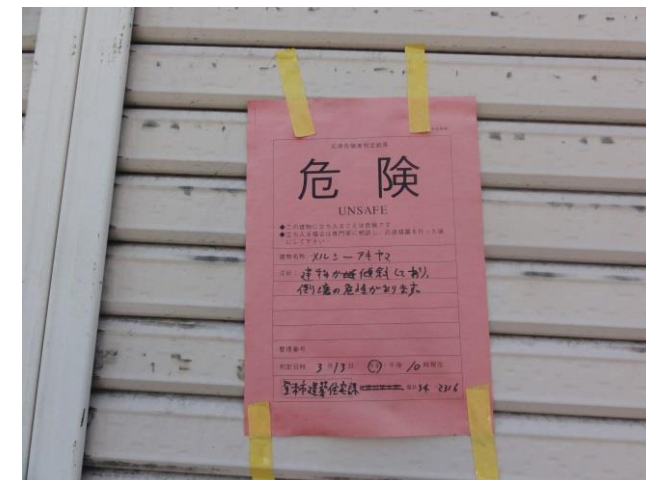 応急危険度判定結果
危険
UNSAFE
●この建物に立ち入ることは危険です
●立ち入る場合は専門家に相談し、応急措置を行った後
にして下さい
建物名称 メルシーアキヤマ
注記: 建物が傾斜しており、
倒壊の危険があります。
整理番号
判定日時 3月13日 午前・午後 10時現在
建築住宅課 電話 34 2316